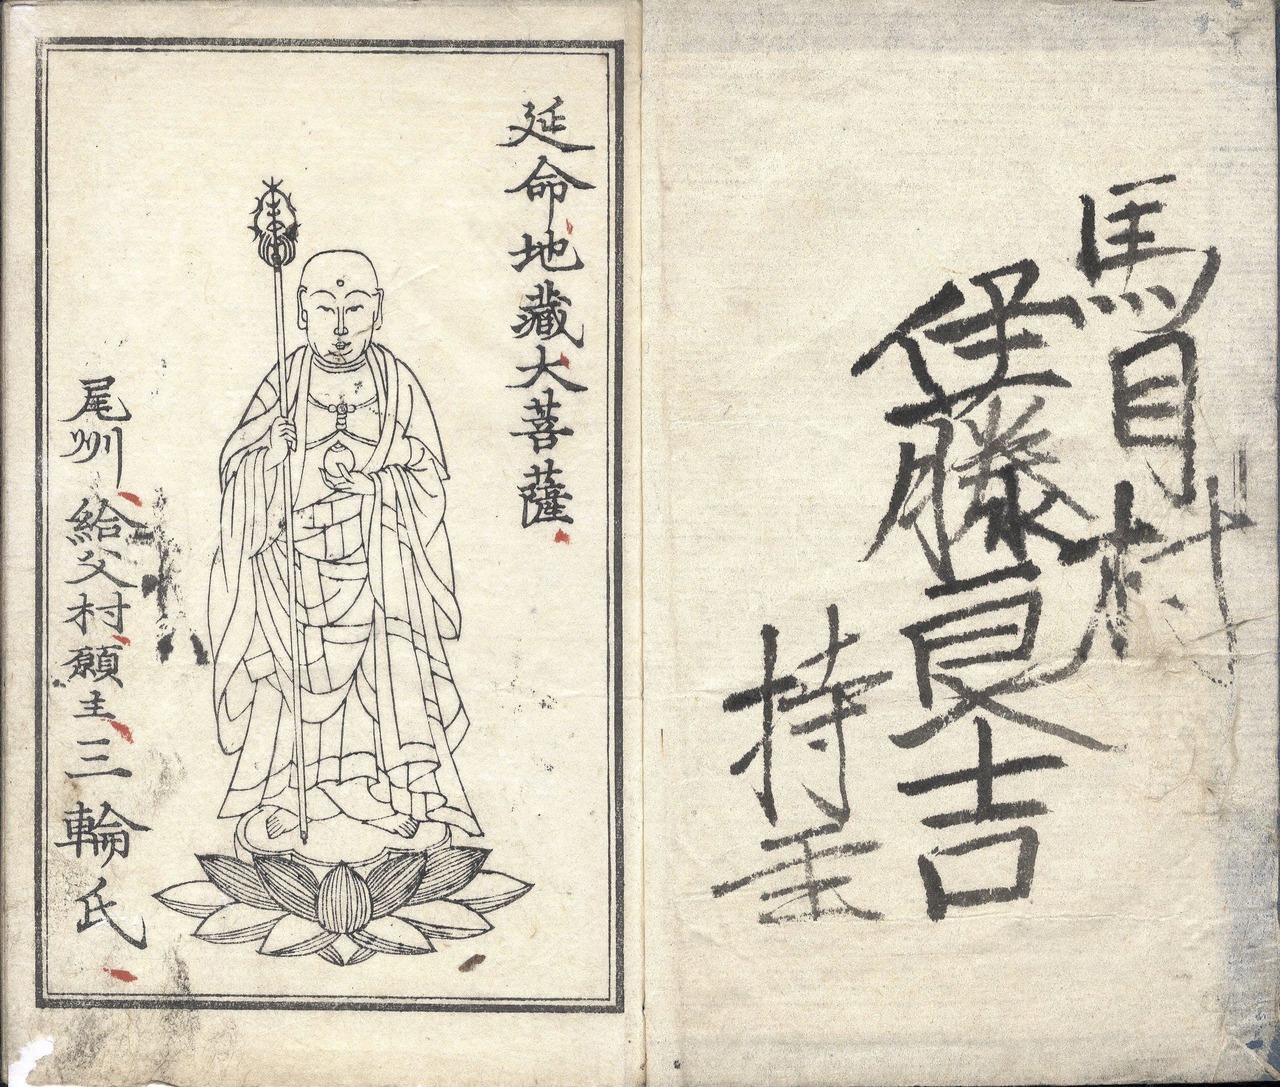 馬目村
佐藤良吉
持主
延命地藏大菩薩
尾州給父村願主三輪氏